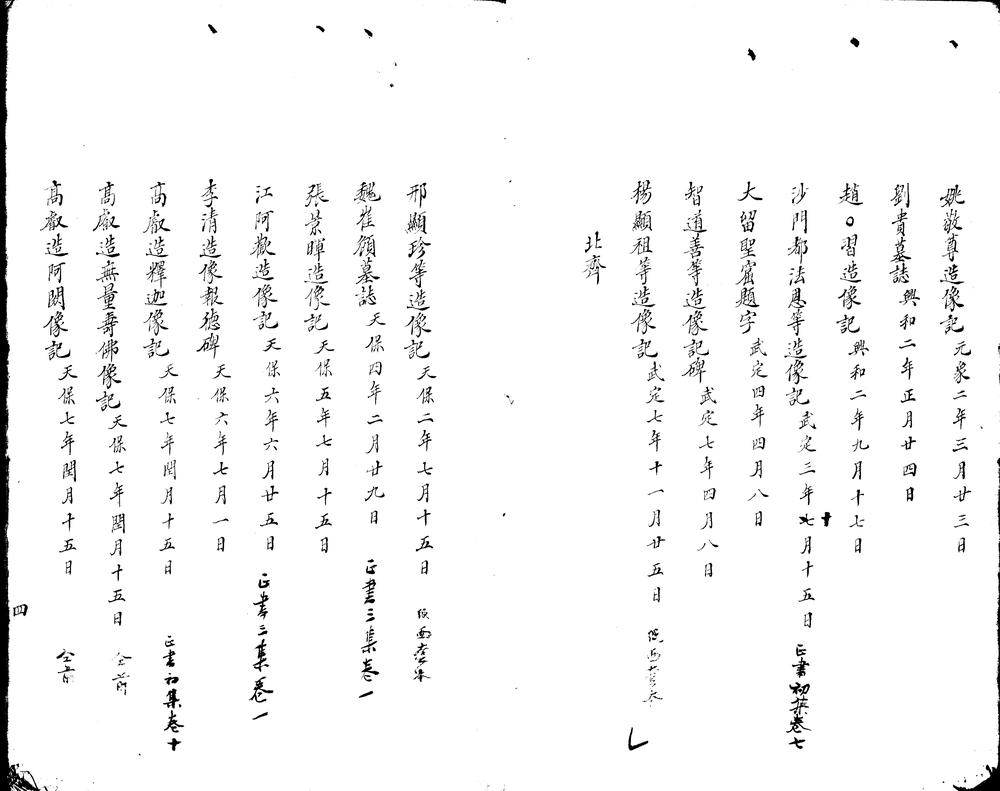 姚敬尊造像記 元象二年三月廿三日
劉貴墓誌 興和二年正月廿四日
趙○習造像記 興和二年九月十七日
沙門都法恩等造像記 武定三年七十月十五日 正書初集卷七
大留聖窟題字 武定四年四月八日
智道善等造像記碑 武定七年四月八日
楊顯祖等造像記 武定七年十一月廿五日
北齊
邢顯珍等造像記 天保二年七月十五日
魏崔頠墓誌 天保四年二月廿九日 正書三集卷一
張景暉造像記 天保五年七月十五日
江阿歡造像記 天保六年六月廿五日 正書三集卷一
李清造像報德碑 天保六年七月一日
高叡造釋迦像記 天保七年閏月十五日 正書初集卷十
高叡造無量壽佛像記 天保七年閏月十五日 仝前
高叡造阿閦像記 天保七年閏月十五日 仝前
四